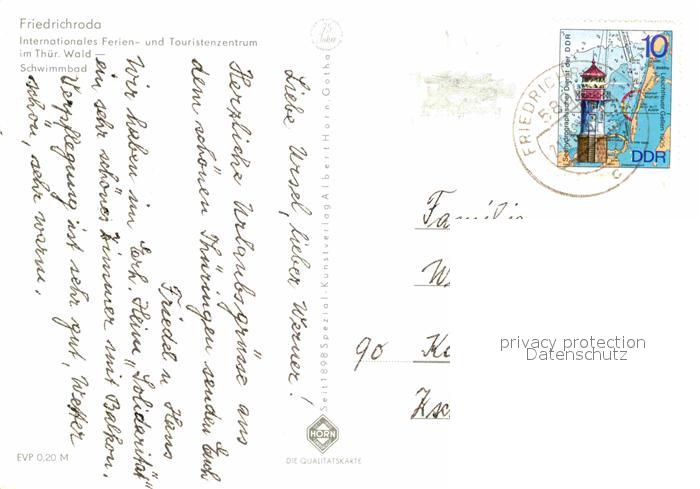 Friedrichroda
Internationales Ferien- und Touristenzentrum
im Thür. Wald —
Schwimmbad
Liebe Ursel, lieber Werner!
Herzliche Urlaubsgrüsse aus
dem schönen Thüringen senden Euch
Friedel u Hans
Wir haben im Erh. Heim „Solidarität"
ein sehr schönes Zimmer mit Balkon.
Verpflegung ist sehr gut, Wetter
schön, sehr warm.
EVP 0,20 M
Seit 1898 Spezial-Kunstverlag Albert Horn, Gotha
HORN
DIE QUALITÄTSKARTE
10
Seehydrographischer Dienst der DDR
Leuchtfeuer Gellen 1905
DDR
FRIEDRICH
58
c
Familie
W
90 K
Zsc
privacy protection
Datenschutz